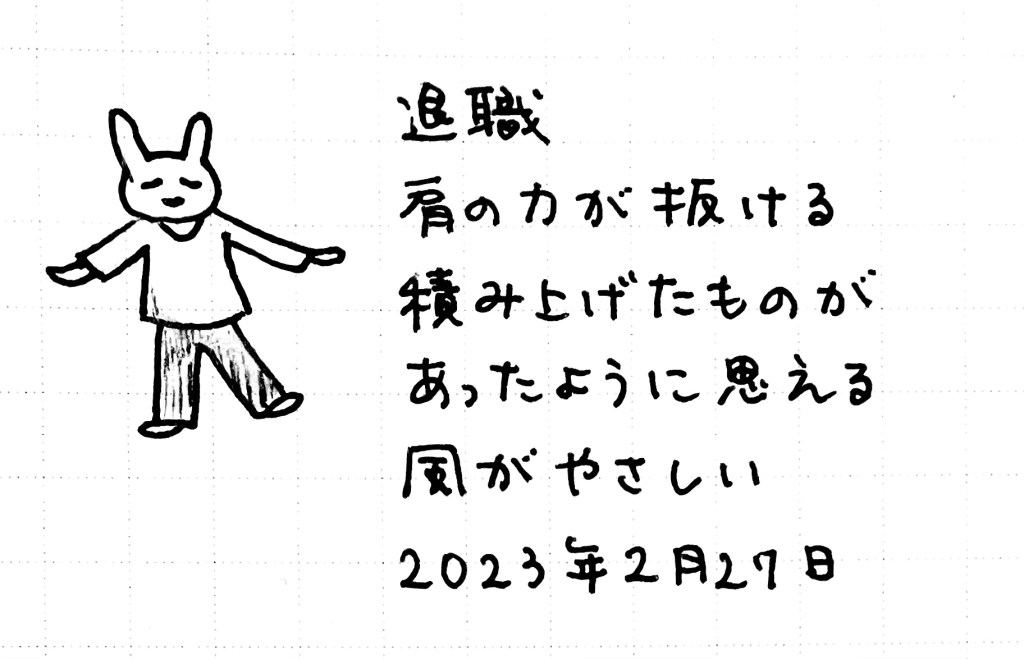 退職
肩の力が抜ける
積み上げたものが
あったように思える
風がやさしい
2023年2月27日